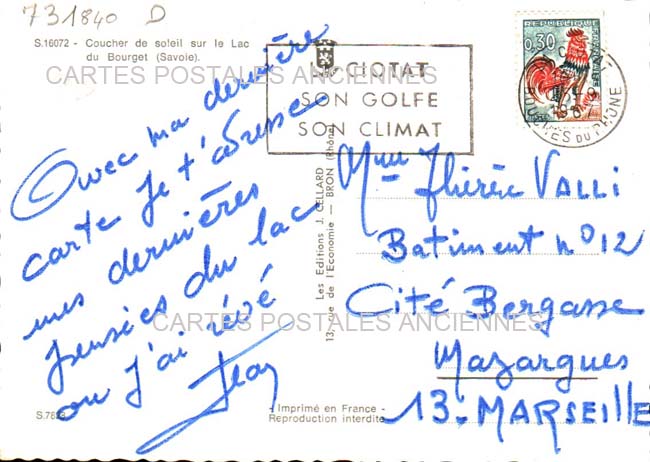 731840 D
S.16072 - Coucher de soleil sur le Lac
du Bourget (Savoie).
CARTES POSTALES ANCIENNES
LA CIOTAT
SON GOLFE
SON CLIMAT
REPUBLIQUE
FRANCAISE
0,30
BOUCHES DU RHÔNE
Avec ma dernière
carte je t'adresse
mes dernières
pensées du lac
ou j'ai rêvé
Jean
Les Editions J. CELLARD
13, rue de l'Economie - BRON (Rhône)
Mme Thérèse VALLI
Batiment n° 12
Cité Bergasse
Mazargues
13-MARSEILLE
CARTES POSTALES ANCIENNES
Imprimé en France -
Reproduction interdite